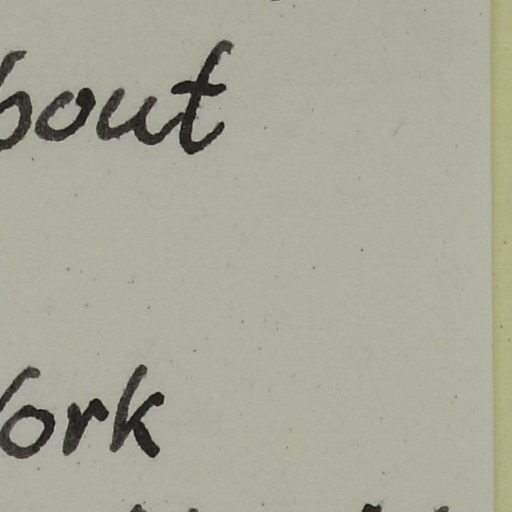 bout
ork